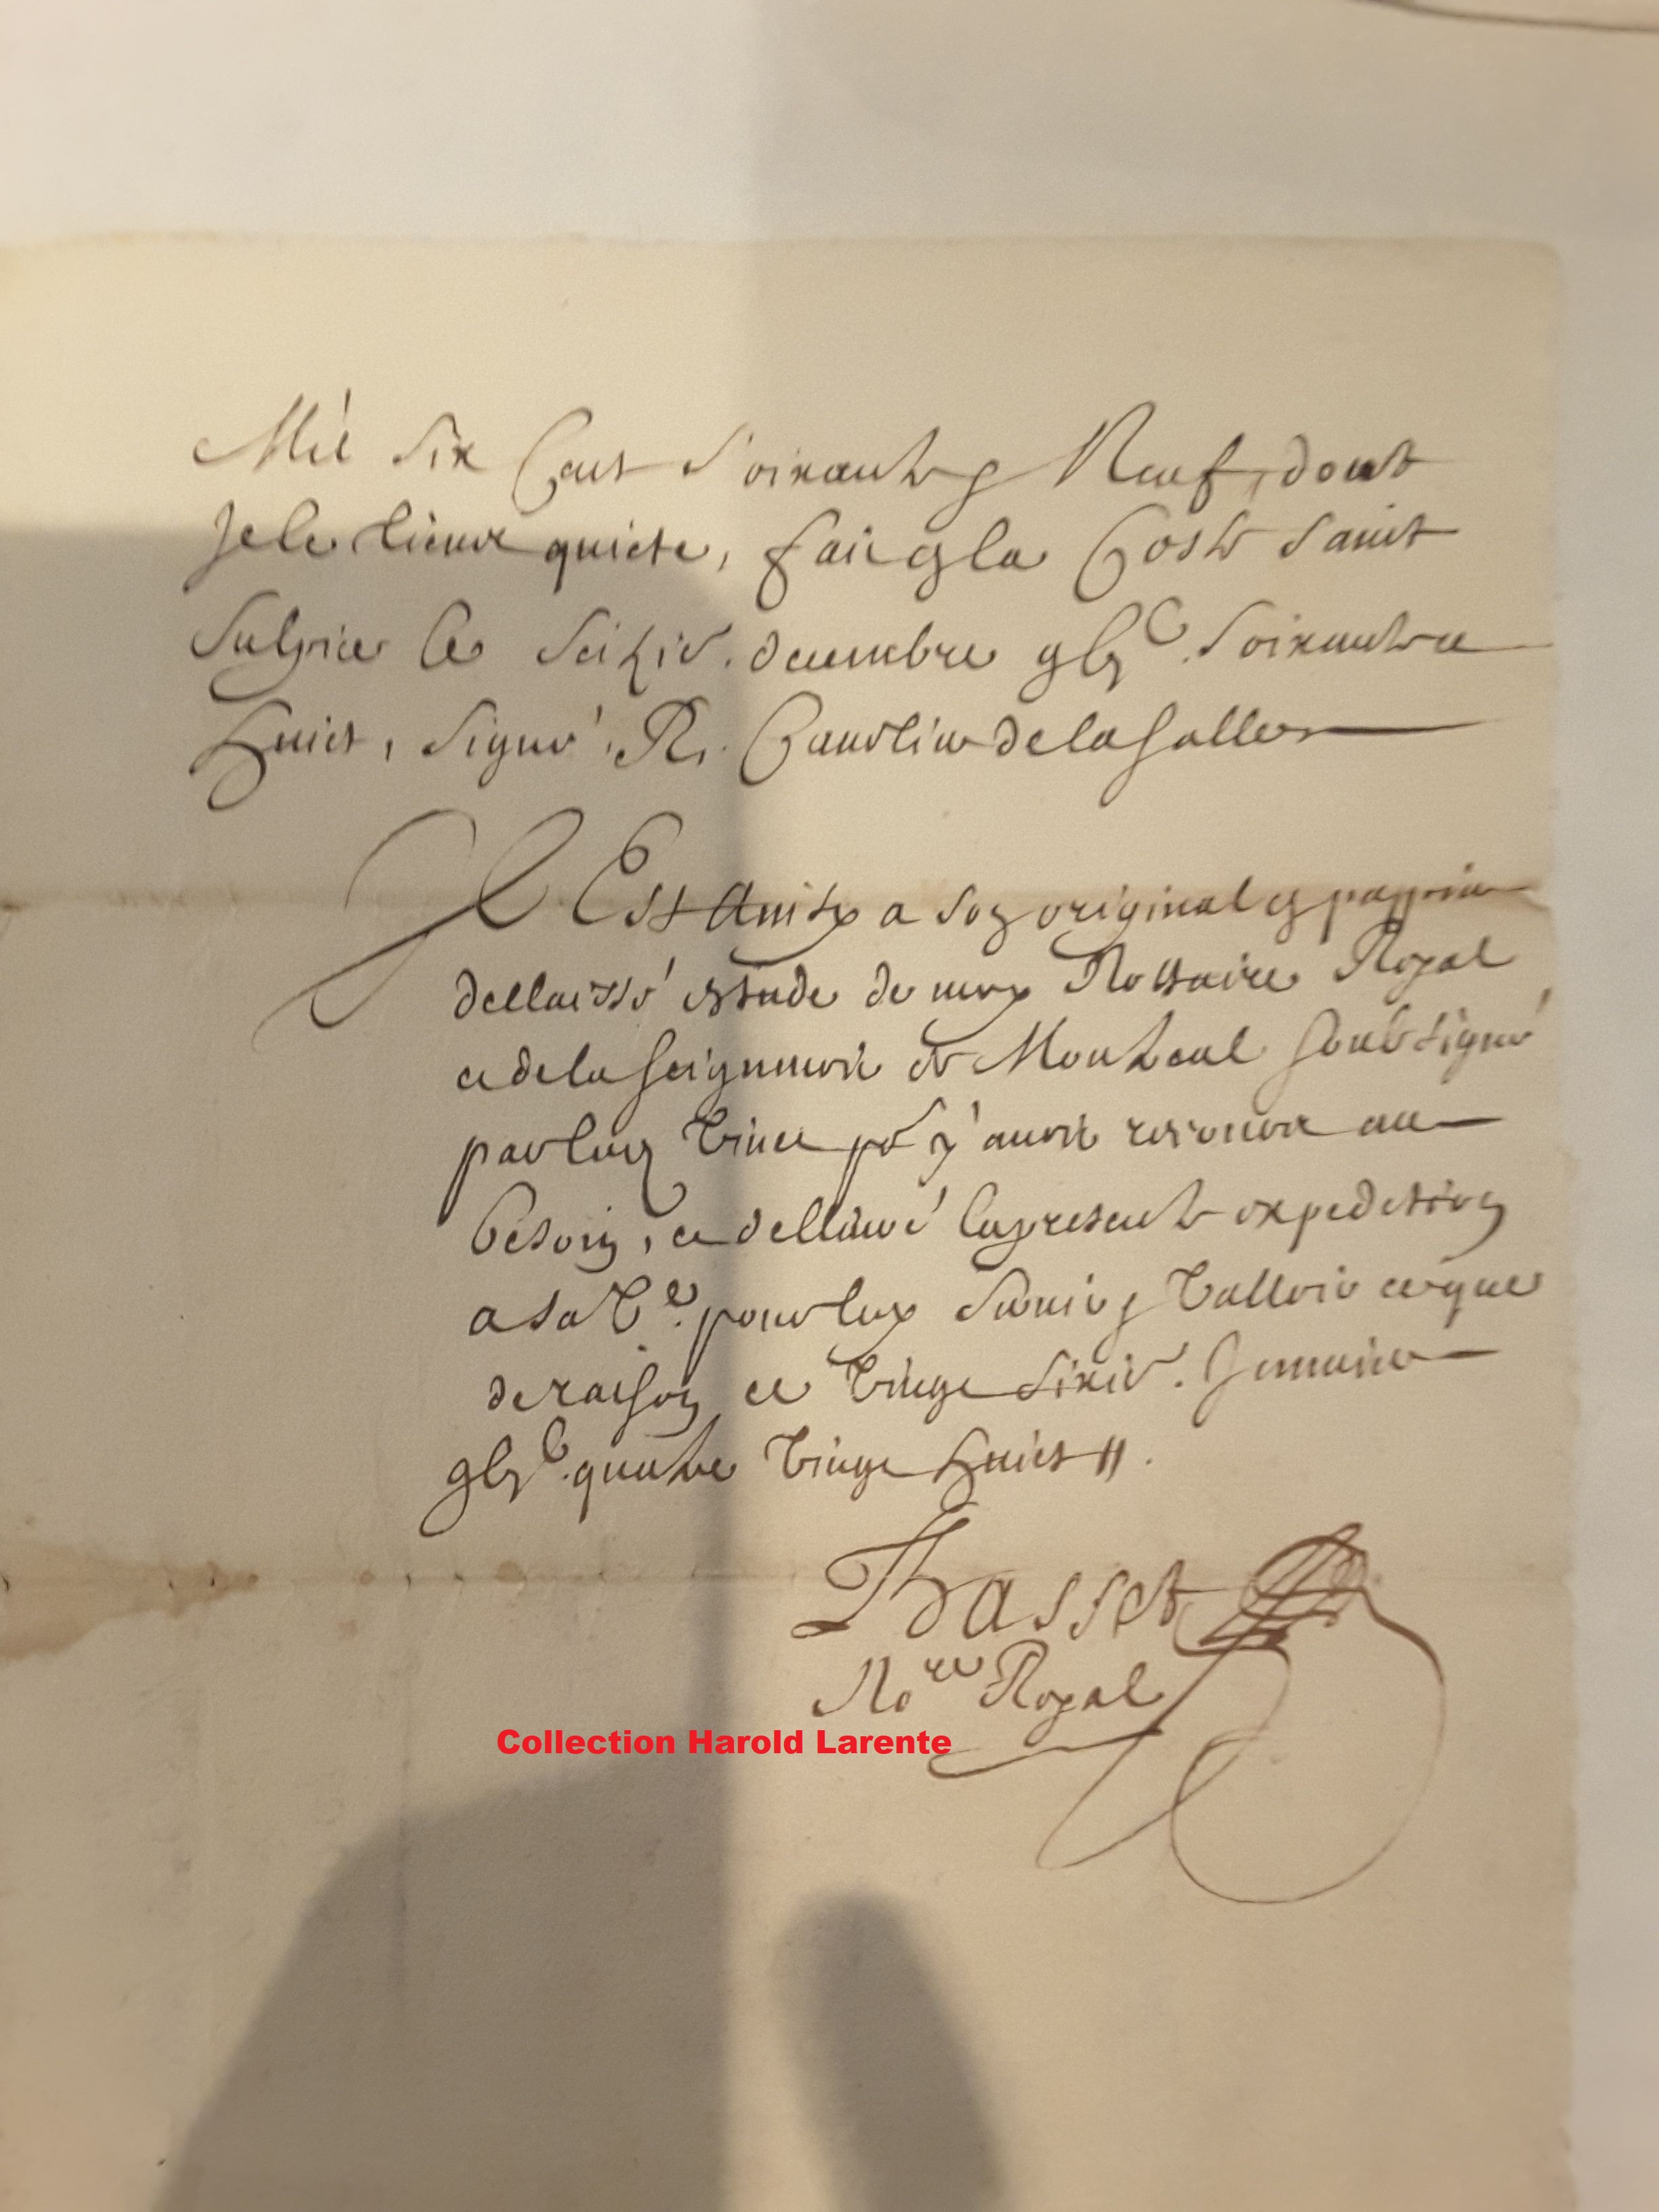 Mil six Cent Soixante & Neuf, dont
Je le tiens quicte, faict a la Coste Saint
Sulpice le seiziē. decembre gbic. Soixante et
huict, signé, R. Cauelier de la Salle
Est Ainsy a son original en pappier
dellaissé estude de moy Nottaire Royal
et de la seigneurie de Montreal soubsigné
par luy veu pr y auoir recours au
besoin, et dellivré la presente expedition
a sa re. pour luy servir & valloir ce que
de raison ce vingt sixiē. Januier
gbic. quatre vingt huict //.
Basset
Nore Royal
Collection Harold Larente